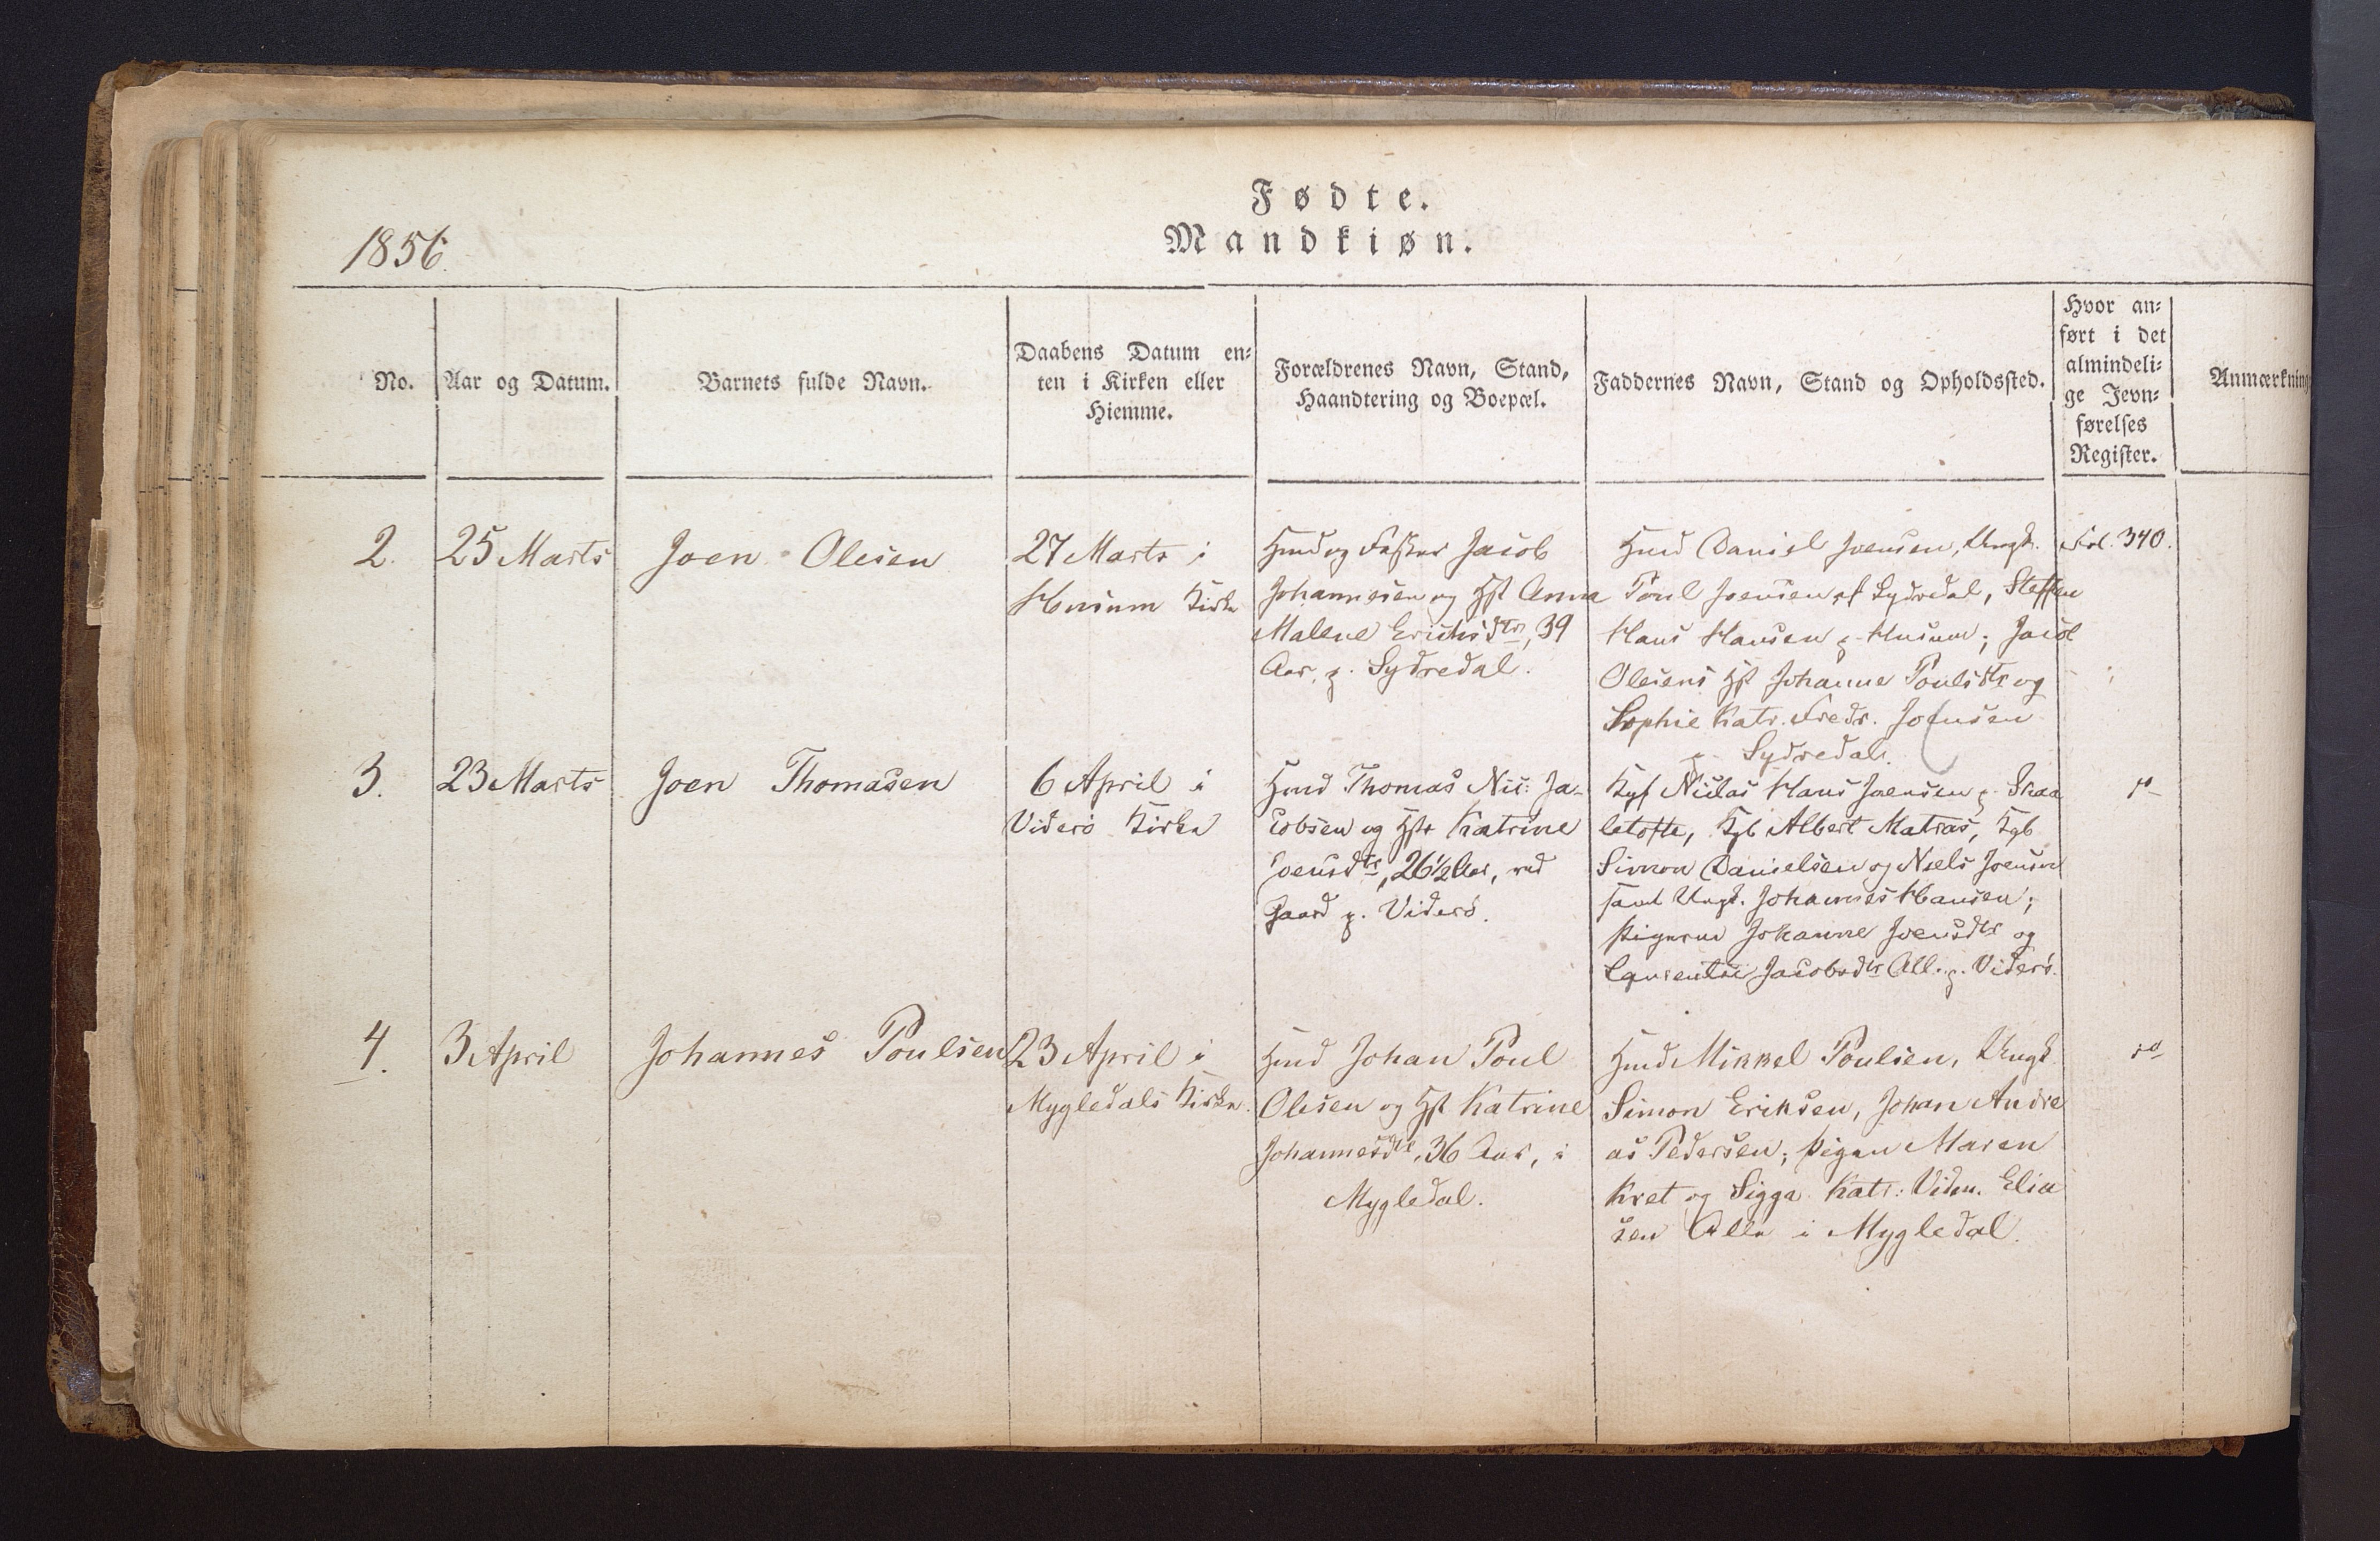 Fødte.
Mandkiøn.
1856.
No.
Aar og Datum.
Barnets fulde Navn.
Daabens Datum en-
ten i Kirken eller
Hiemme.
Forældrenes Navn, Stand,
Haandtering og Boepæl.
Faddernes Navn, Stand og Opholdssted.
Hvor an-
ført i det
almindeli-
ge Jevn-
førelses
Register.
Anmærkning
2.
25 Marts
Joen Olesen
27 Marts i
Husum Kirke
Hmd og Fæster Jacob
Johannesen og Hst Anna
Malene Erichsdtr, 39
Aar, p. Sydredal.
Hmd Daniel Joensen, Ungk.
Poul Joensen af Sydredal, Steffen
Hans Hansen p. Husum; Jacob
Olesens Hst Johanne Poulsdtr og
Sophie Katr. Fredr. Joensen
p. Sydredal.
Fol. 340.
3.
23 Marts
Joen Thomasen
6 April i
Viderö Kirke
Hmd Thomas Nic: Ja-
cobsen og Hstr Katrine
Joensdtr, 26½ Aar, ved
Gaard p. Viderö.
Kgf Niclas Hans Joensen p. Skaa
letofte, Kgb Albert Matras, Kgb
Simon Danielsen og Niels Joensen
samt Ungk. Johannes Hansen;
Pigerne Johanne Joensdtr og
Laurentse Jacobsdtr All. p. Viderö.
do
4.
3 April
Johannes Poulsen
23 April i
Mygledals Kirke.
Hmd Johan Poul
Olesen og Hst Katrine
Johannesdtr, 36 Aar, i
Mygledal.
Hmd Mikkel Poulsen, Ungk.
Simon Eriksen, Johan Andre
as Pedersen; Pigen Maren
Kret og Sigga Katr: Vidm. Elia
sen Alle i Mygledal.
do